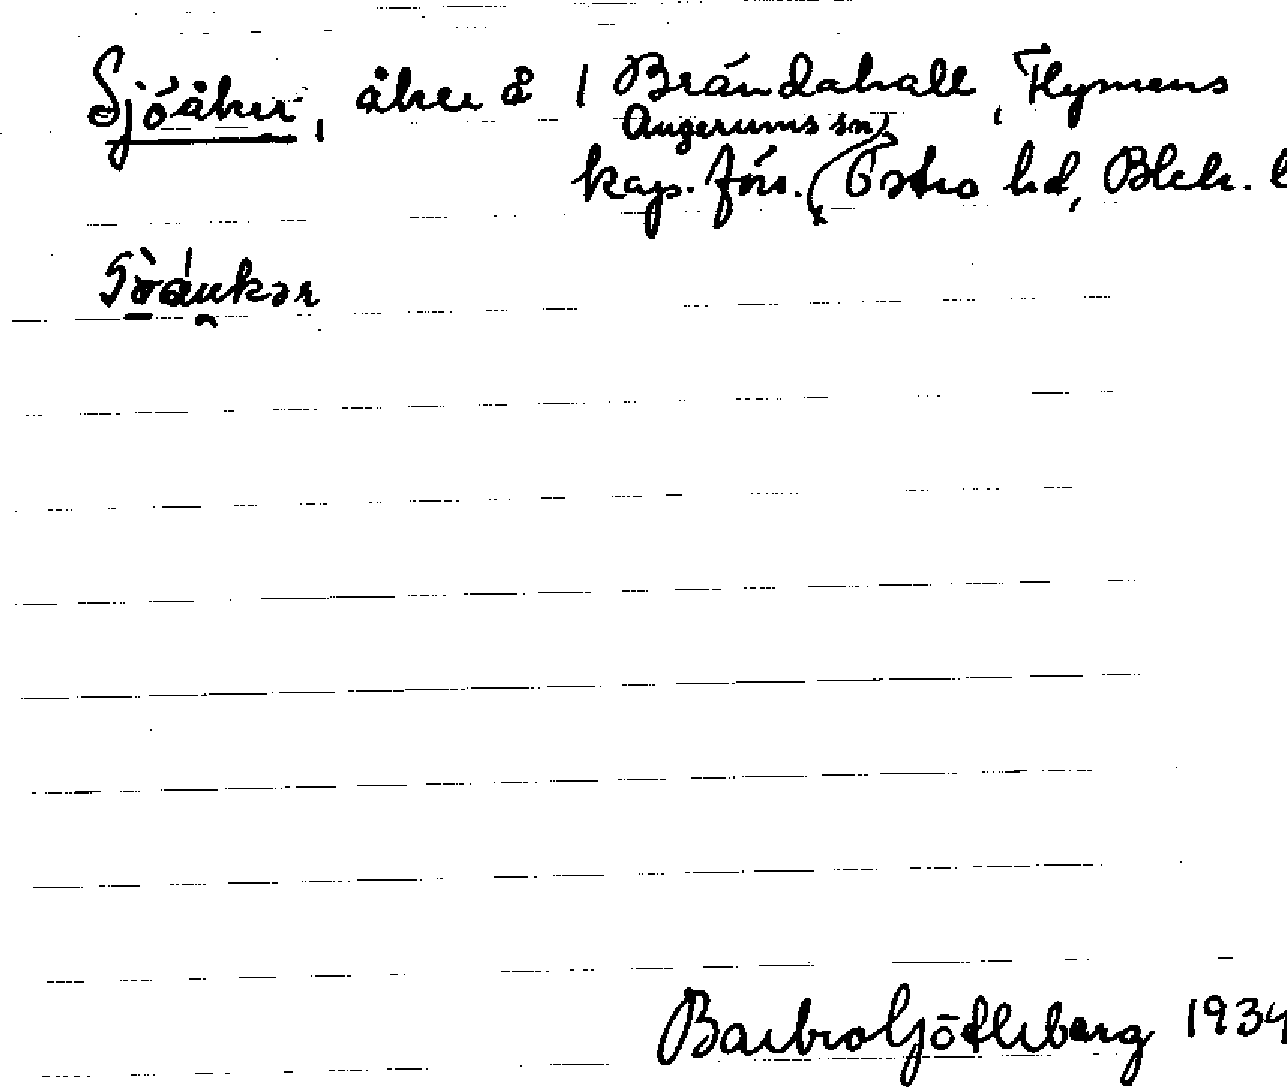 Sjöåker, åker å 1 Brändahall, Flymens
Augerums sn,
kap. förs. Östra hd, Blek. l
Barbro Götlberg 1934